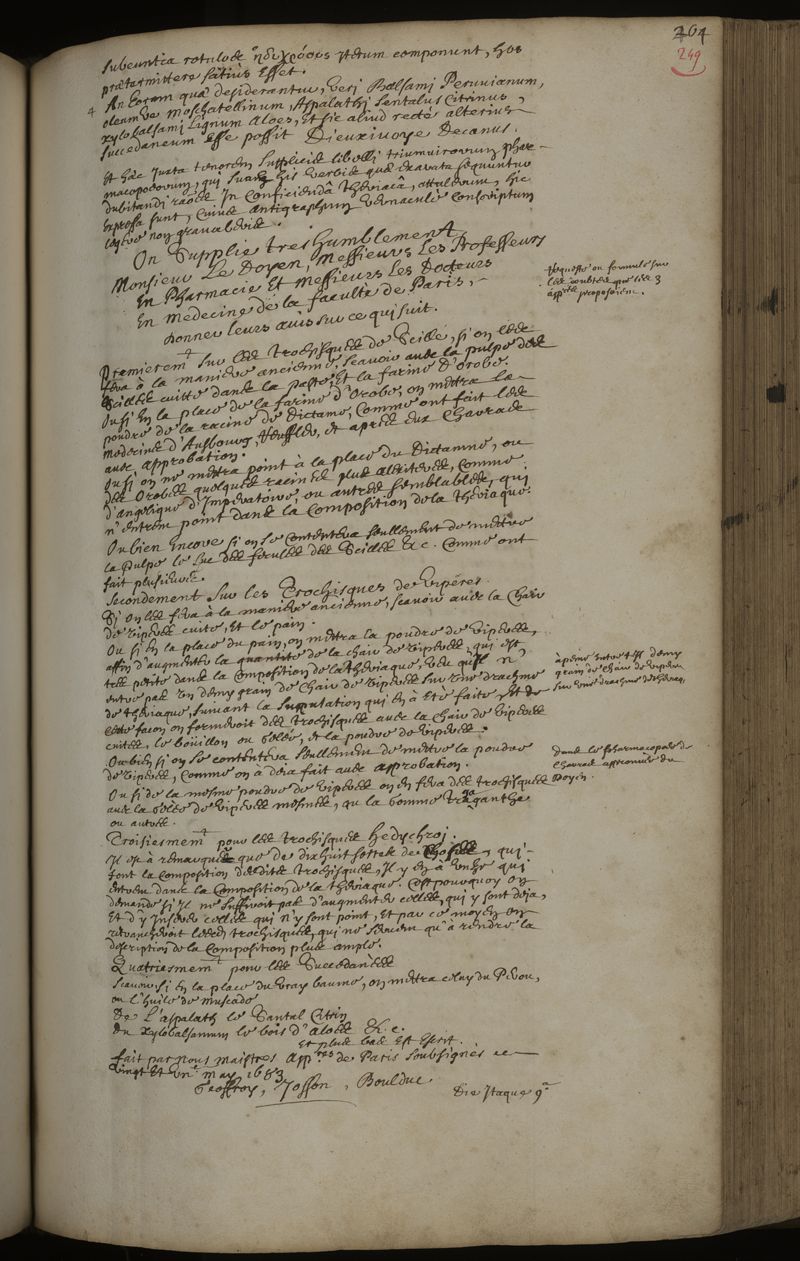 264
249
subeuntia rotulos ἡδυχρόους iterum componunt, hos
prætermittere satius esset.
4 An eorum quæ desiderantur, veri Balsami Peruvianum,
oleumve moschatellinum, Aspalathi Santalus Citrinus,
xylobalsami Lignum Aloes, et sic aliud recte alterius
succedaneum esse possit Dieuxivoye Decanus.
Et hæc juxta tenorem supplicis libelli triumvirorum phar-
macopœorum, qui suas his verbis
dubitandi in conficiendâ Theriacâ, attulerunt, hic
expressa sunt, cuius antigraphum vernacule conscriptum
legere non gravaberis.
On Supplie tres humblement
Monsieur Le Doyen, Messieurs Les Professeurs
En Pharmacie Et Messieurs Les Docteurs
En Medecine de la faculté de Paris,
donner leurs avis sur ce qui suit.
Requeste ou formule sur
les doubtes que les 3
app.res proposoient.
Premierem.t sur les Trochisques de Scille, si on les
fera à la maniere ancienne, scavoir avec la pulpe des
Scilles cuitte dans la paste, Et la farine d'orobe.
Ou si En la place de la farine d'Orobe, on mettra la
poudre de la racine de Dictame, Comme ont fait les
Medecins d'Ausbourg, et apres eux Charras
avec approbation.
Ou si on ne mettra point à la place du Dictamne, ou
des Orobes quelques racines plus alexiteres, comme
d'angelique d'Imperatoire, ou autres semblables, qui
n'entrent point dans la composition de la Theriaque.
Ou bien encore si on se contentera seullement de mettre
la pulpe le suc des fecules des Scilles &c. Comme ont
fait plusieurs.
Secondement sur les Trochisques de Viperes.
Si on les fera à la maniere ancienne, scavoir avec la Chair
de vipere cuite, Et le pain.
Ou si En la place du pain, on mettra la poudre de viperes,
affin d'augmenter la quantité de la chair de viperes, qui est
tres petite dans la composition de la Theriaque, veu qu'il n'
entre pas un demy grain de Chair de viperes sur une drachme
de theriaque, suivant la supputation qui en à eté faite, Et de
cette facon on formeroit des Trochisques avec la Chair de viperes
cuittes, le bouillon ou gelée, et la poudre de viperes.
à peine entre t'il demy
grain de chair de vipere
sur une drachme de theriaq.
Ou bien si on se contentera seullement de mettre la poudre
de viperes, Comme on à deia fait avec approbation.
Dans la Pharmacopée de
Charras approuvée du
Doyen.
Ou si de la mesme poudre de viperes on en fera des trochisques
avec la gelée de viperes mesmes, ou la Gomme Traganthe
ou autres.
Troisiesmem.t pour les Trochisques Hedychroj.
Il est à remarquer que de dixhuit sortes de choses, qui
font la composition desdits trochisques, Il y en à Unze qui
entrent dans la Composition de la theriaque. C'est pourquoy on
demande si Il ne suffiroit pas d'augmenter celles, qui y sont deja,
Et d'y inserer celles qui n'y sont point, Et par ce moyen on
retrancheroit lesd.s trochisques, qui ne servent qu'à rendre la
description de la composition plus ample.
Quatriesmem.t pour les Succedanées
Scavoir si En la place du vray baume, on mettra celuy du Perou,
ou l'huile de muscade
De L'aspalath le Santal Citrin
du xylobalsamum le bois d'aloes &c.
Et plus bas Est Escrit.
fait par nous maistres App.res de Paris soubsignés ce
vingt et un.e may 1683
Geoffroy, Josson, Boulduc
Die Itaque 9.a